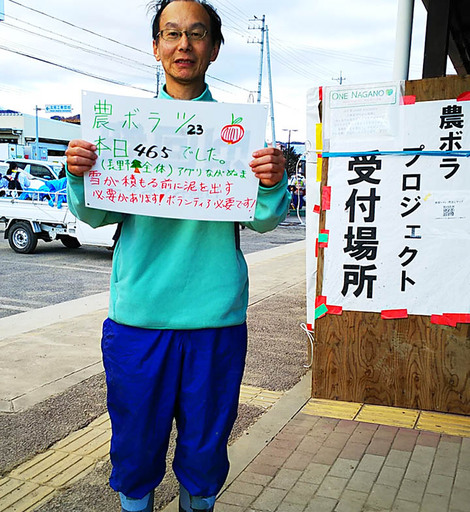 農ボラ 11/23
本日465でした。
(長野全体) アグリながぬま
雪が積もる前に泥を出す
必要があります！ボランティア必要です！
ONE NAGANO
農ボラ
プロジェクト
受付場所